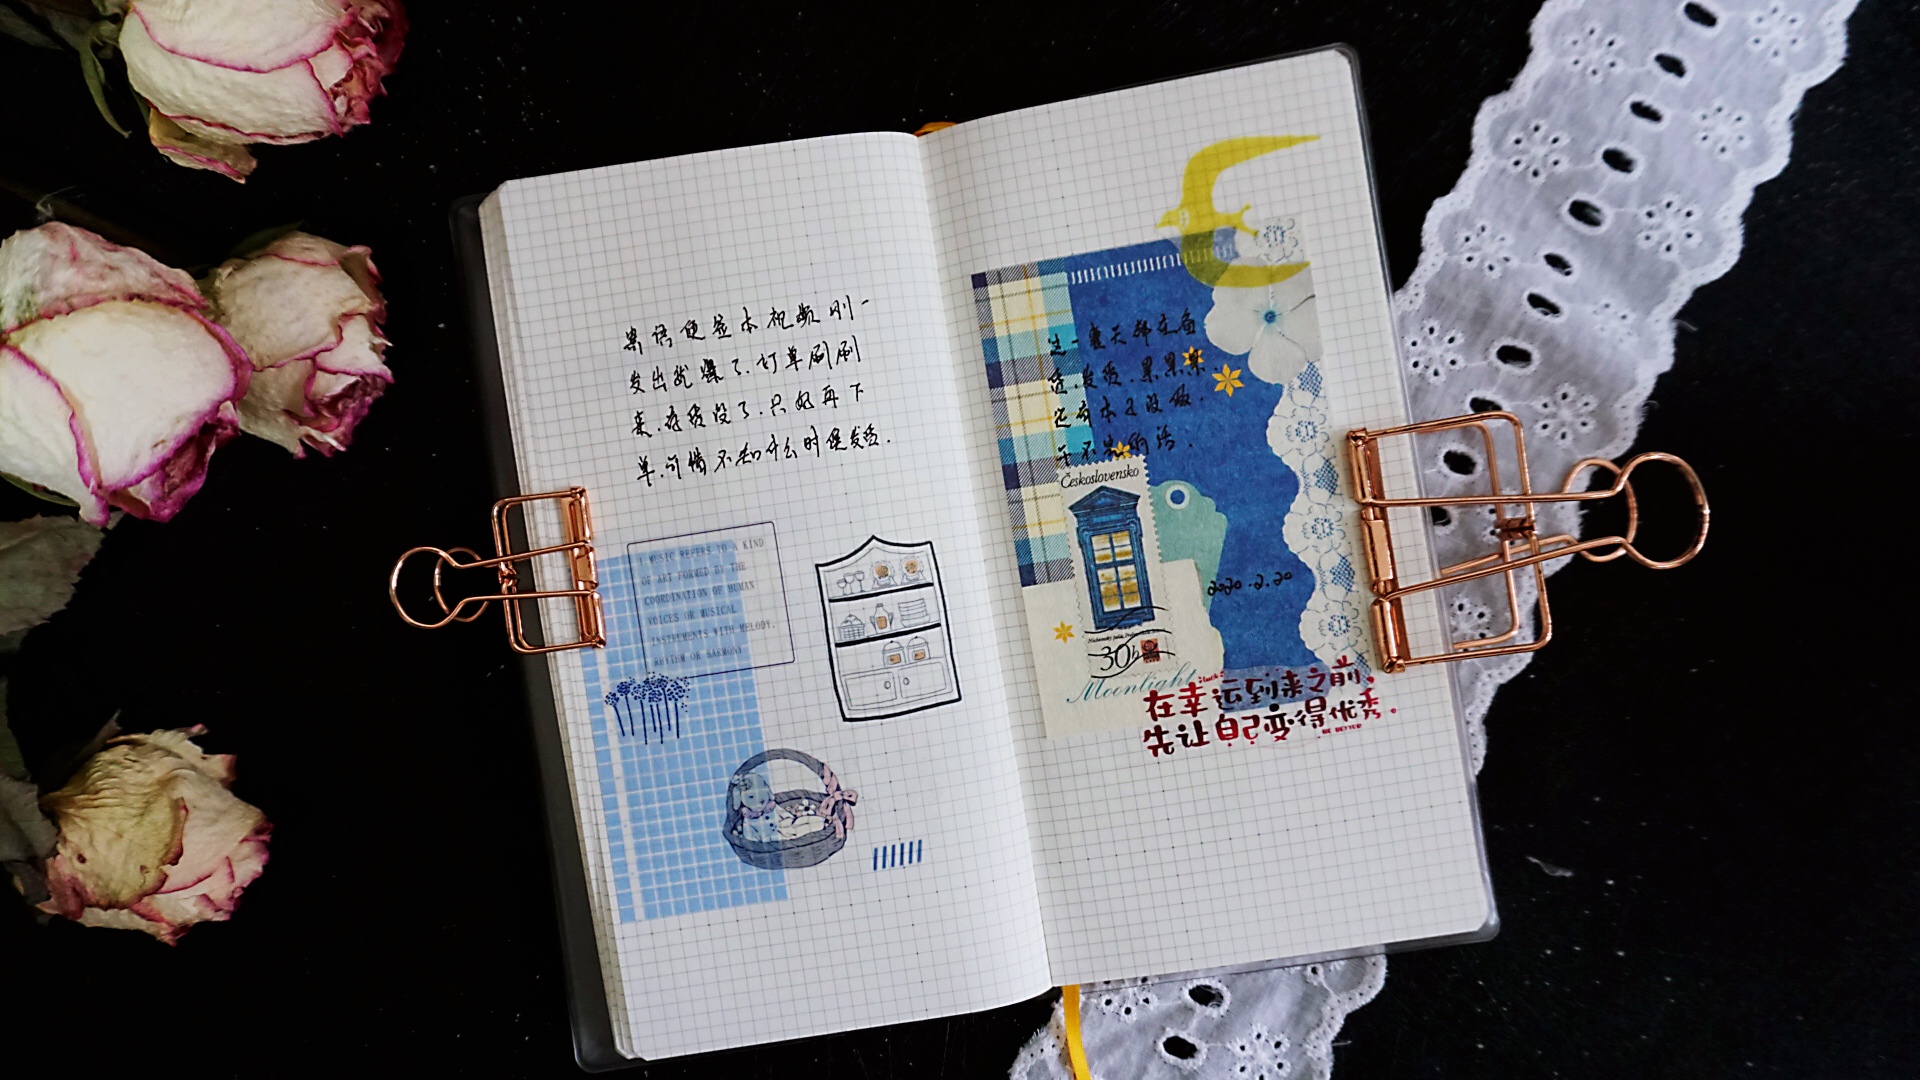 寄语便签本视频刚一
发出就爆了.订单刷刷
来.存货没了.只好再下
单.可惜不知什么时候发货.
I MUSIC REFERS TO A KIND
OF ART FORMED BY THE
COORDINATION OF HUMAN
VOICES OR MUSICAL
INSTRUMENTS WITH MELODY,
RHYTHM OR HARMONY
一整天都在
货.发货.累累累
它本子没做.
干不完的活.
Československo
30h
2020.2.20
Moonlight
在幸运到来之前,
先让自己变得优秀。
BE BETTER